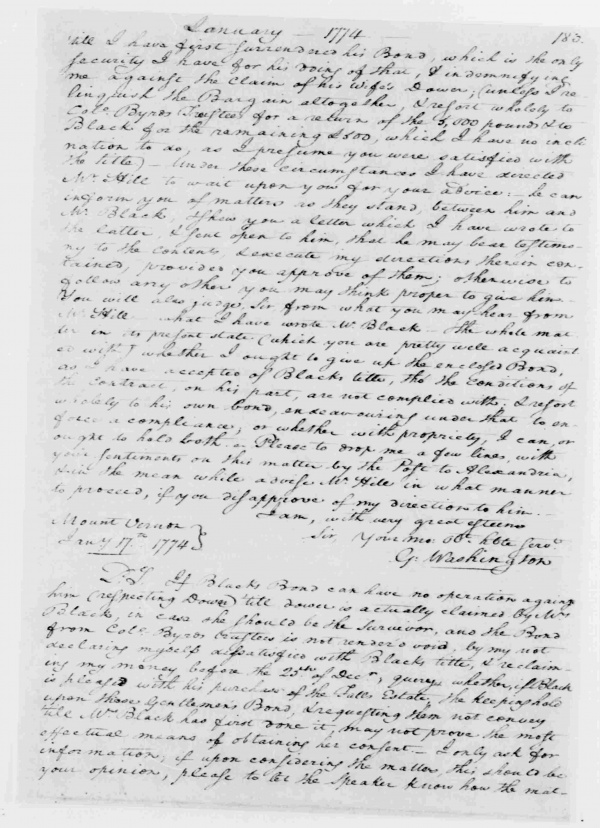 January — 1774 — 183.
'till I have first surrendred his Bond, which is the only
security I have for his doing of that, & indemnifying
me against the Claim of his Wife's Dower; (unless I re
linquish the Bargain altogether, & resort wholely to
Colo. Byrds Trustees for a return of the 5,000 pounds & to
Black for the remaining £500, which I have no incli
nation to do, as I presume you were satisfied with
the title) — Under these circumstances I have directed
Mr. Hill to wait upon you for your advice: — he can
inform you of matters as they stand, between him and
Mr. Black, & shew you a letter which I have wrote to
the latter, & sent open to him, that he may bear testimo-
ny to the contents, & execute my directions therein con-
tained, provided you approve of them; otherwise to
follow any other you may think proper to give him.
You will also judge, Sir, from what you may hear from
Mr. Hill — what I have wrote Mr. Black — the whole mat-
ter in its present state (which you are pretty well acquaint
ed with) whether I ought to give up the enclosed Bond,
as I have accepted of Blacks title, tho' the conditions of
the contract, on his part, are not complied with; & resort
wholely to his own bond, endeavouring under that to en-
force a compliance; or whether with propriety, I can, or
ought to hold both. — Please to drop me a few lines, with
your sentiments on this matter by the Post to Alexandria,
& in the mean while advise Mr. Hill in what manner
to proceed, if you disapprove of my direction to him. —
I am, with very great esteem
Mount Vernon }
Sir, Your mo. Obt. Hble Servt.
Jany 17th. 1774 }
Go. Washington
P.S. If Blacks Bond can have no operation against
him (respecting Dower) 'till dower is actually claimed by Mrs
Black, in case she should be the Survivor, and the Bond
from Colo. Byrds Trustees is not render'd void, by my not
declaring myself dissatisfied with Blacks title, & reclaim-
ing my money before the 25th of Decr., quere, whether, if Black
is pleased with his purchase of the Falls Estate, the keeping hold
upon those Gentlemen's Bond, & requesting them not convey
till Mr. Black has first done it, may not prove the most
effectual means of obtaining her consent — I only ask for
information; if upon considering the matter, this should be
your opinion, please to let the Speaker know how the mat-